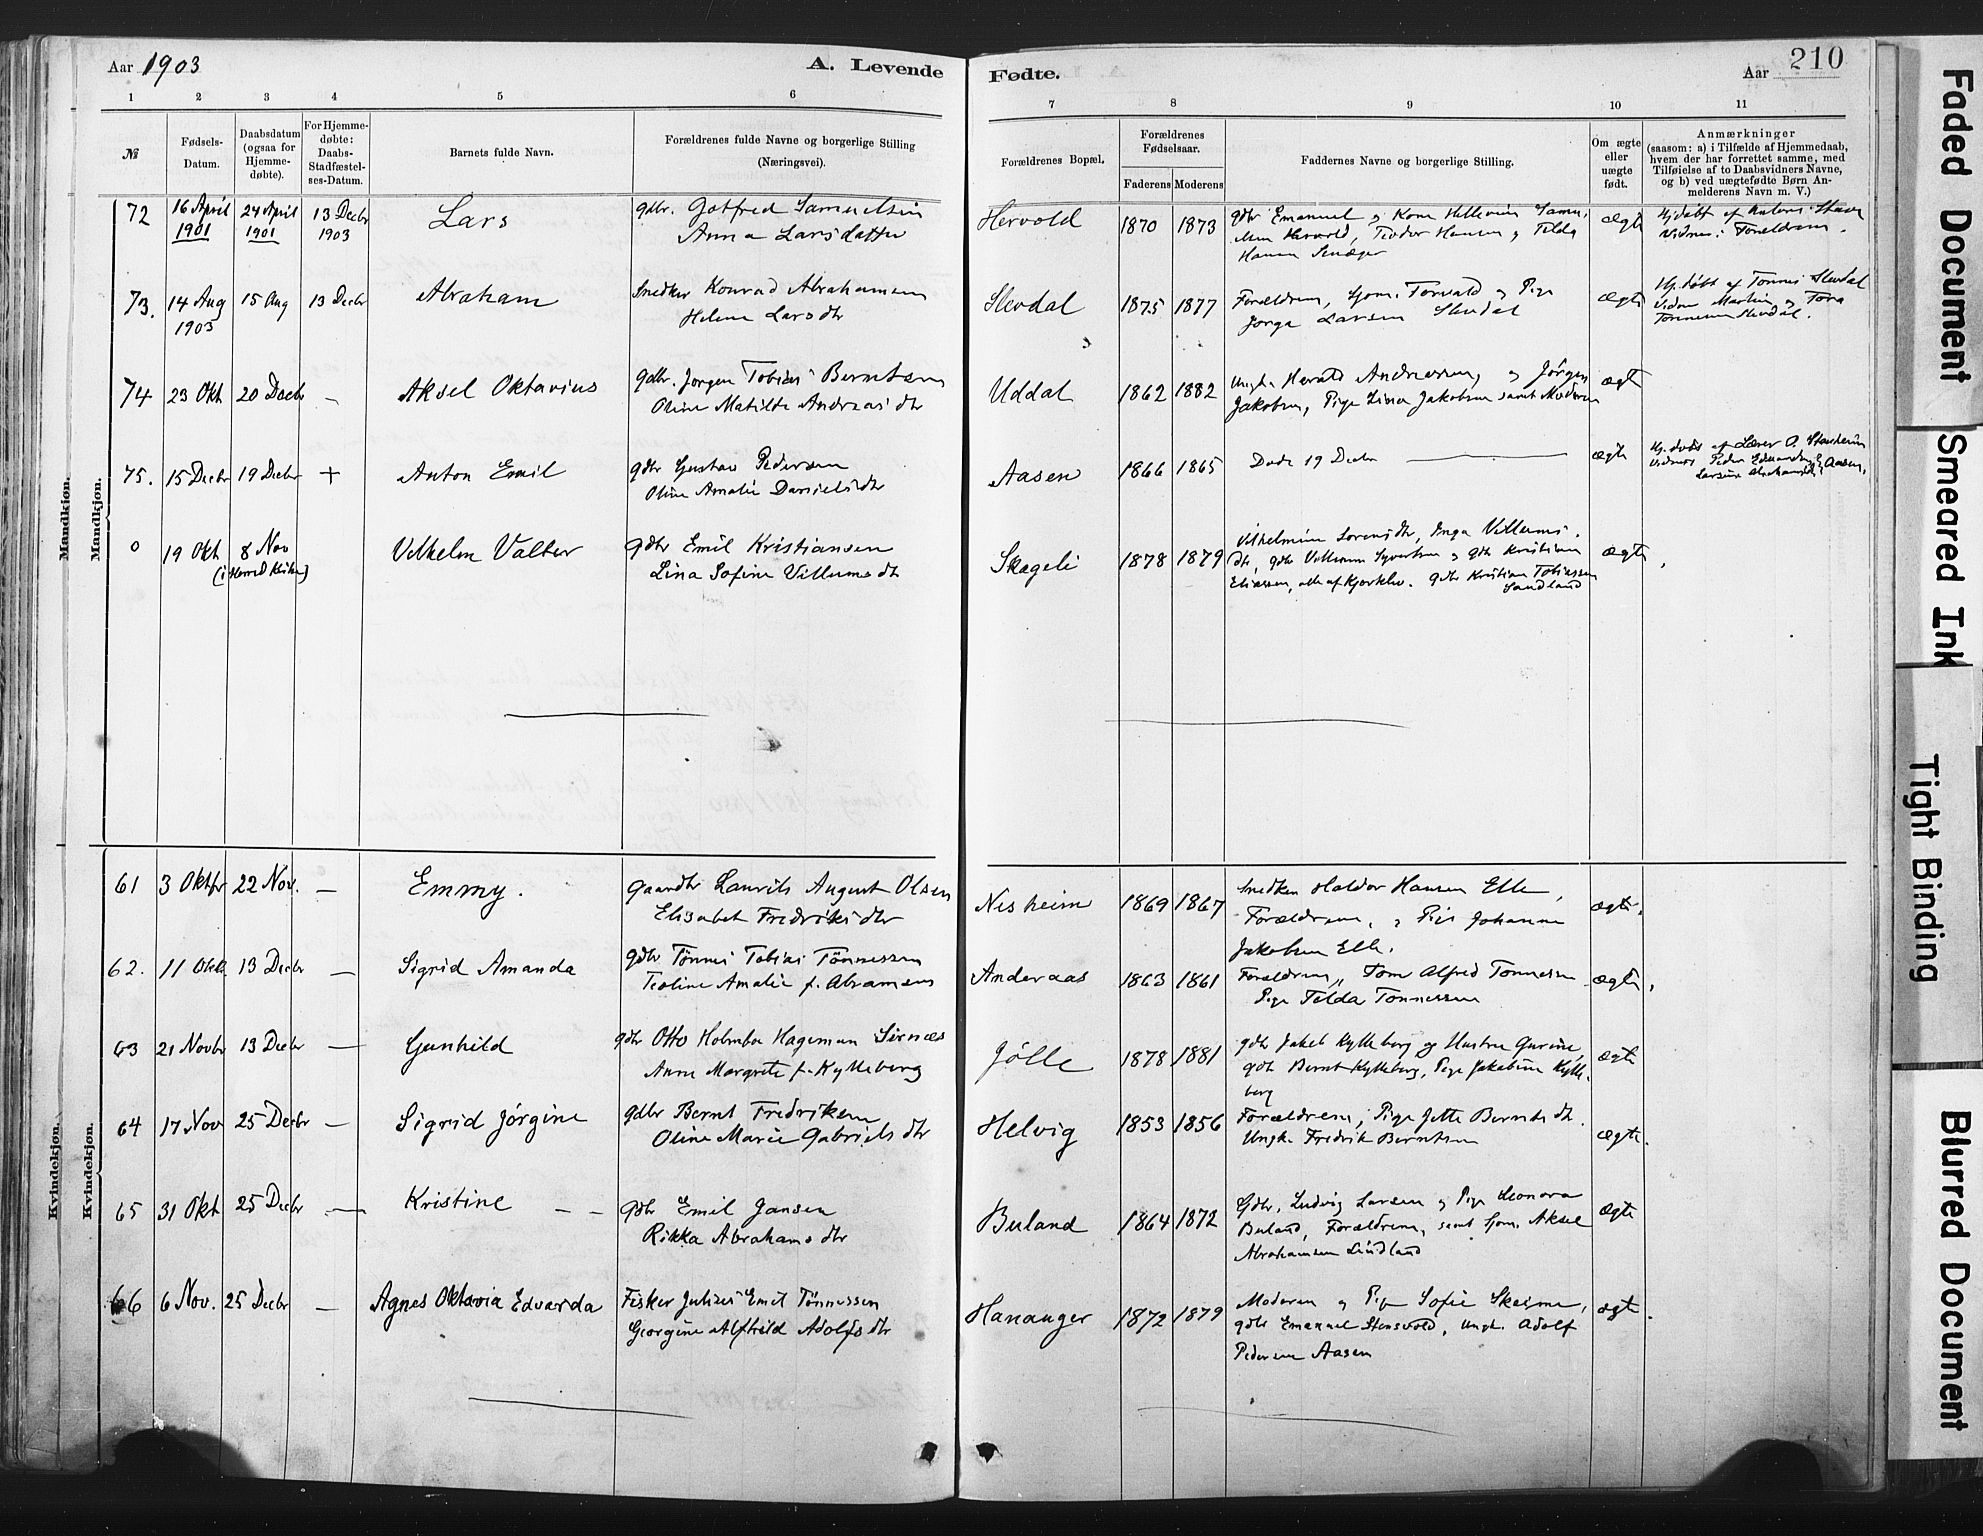 Aar 1903
A. Levende
Fødte.
Aar
210
1 2 3 4 5 6 7 8 9 10 11
№
Fødsels-
Datum.
Daabsdatum
(ogsaa for
Hjemme-
døbte).
For Hjemme-
døbte:
Daabs-
Stadfæstel-
ses-Datum.
Barnets fulde Navn.
Forældrenes fulde Navne og borgerlige Stilling
(Næringsvei).
Forældrenes Bopæl.
Forældrenes
Fødselsaar.
Faderens Moderens
Faddernes Navne og borgerlige Stilling.
Om ægte
eller
uægte
født.
Anmærkninger
(saasom: a) i Tilfælde af Hjemmedaab,
hvem der har forrettet samme, med
Tilføielse af to Daabsvidners Navne,
og b) ved uægtefødte Børn An-
melderens Navn m. V.)
Mandkjøn.
Mandkjøn.
72 16 April 24 April 13 Decbr Lars gdbr. Gotfred Samuelsen
1901 1901 1903 Anna Larsdatter
Hervold 1870 1873 gdbr Emanuel
Hervold, Teodor Hansen og Tilda
Hansen
ægte
Hj.døbt af
Vidner: Forældrene.
73. 14 Aug 15 Aug 13 Decbr Abraham Snedker Konrad Abrahamsen
1903 Helene Larsdtr
Slevdal 1875 1877 Forældrene, Torvald og Pige
Larsen Slevdal
ægte
Hj.døbt af Tønnes Slevdal
Martin og Tora
Tønnesen Slevdal.
74 23 Okt 20 Decbr – Aksel Oktavius gdbr. Jørgen Tobias Berntsen
Oline Matilde Andreasdtr
Uddal 1862 1882 Ungk. Herald Andreassen, og Jørgen
Jakobsen, Pige Lina Jakobsen samt Moderen
ægte
75. 15 Decbr 19 Decbr + Anton Emil gdbr Gustav Pedersen
Oline Amalie Danielsdtr
Aasen 1866 1865 Døde 19 Decbr
ægte
Hj.døbt af Lærer O.
Vidner Peder
Aasen.
0 19 Okt 8 Nov Vilhelm Valter gdbr Emil Kristiansen
(i Herred Kirke) Lina Sofine Villumsdtr
Skageli 1878 1879 Vilhelmine Lorensdtr, Inga Villums-
dtr, gdbr Villum Syvertsen og gdbr Kristian
Eliassen, alle af gdbr Kristian Tobiassen
Sandland
ægte
Kvindekjøn.
Kvindekjøn.
61 3 Oktbr 22 Nov. – Emmy. Gaardbr Laurits August Olsen
Elisabet Fredriksdtr
Nesheim 1869 1867 Snedker Haldor Hansen Elle,
Forældrene, og Pige Johanne
Jakobsen Elle.
ægte.
62. 11 Okt 13 Decbr – Sigrid Amanda gdbr Tønnes Tobias Tønnessen
Teoline Amalie f. Abramsen
Anderaas 1863 1861 Forældrene, Tom Alfred Tønnessen
Pige Tilda Tønnessen
ægte.
63 21 Novbr 13 Decbr – Gunhild gdbr Otto Holmboe Hageman Sirnes
Anne Margrete f. Kylleberg
Jølle 1878 1881 gdbr Jakob Kylleberg og Hustru Gurine,
gdbr Bernt Kylleberg, Pige Jakobine Kylle-
berg
ægte
64 17 Nov 25 Decbr – Sigrid Jørgine gdbr Bernt Fredriksen
Oline Marie Gabrielsdtr
Helvig 1853 1856 Forældrene, Pige Jette Berntsdtr.
Ungk. Fredrik Berntsen
ægte.
65 31 Okt 25 Decbr – Kristine – – gdbr Emil Jansen
Rikka Abrahamsdtr
Buland 1864 1872 Gdbr. Ludvig Larsen og Pige Leonora
Buland, Forældrene, samt Aksel
Abrahamsen Lindland
ægte
66 6 Nov. 25 Decbr – Agnes Oktavia Edvarda Fisker Julius Emil Tønnessen
Georgine Alfhild Adolfsdtr
Hananger 1872 1879 Moderen og Pige Sofie Skeime,
gdbr Emanuel Stensvold, Ungk. Adolf
Pedersen Aasen
ægte.
Faded Document
Smeared Ink
Tight Binding
Blurred Document